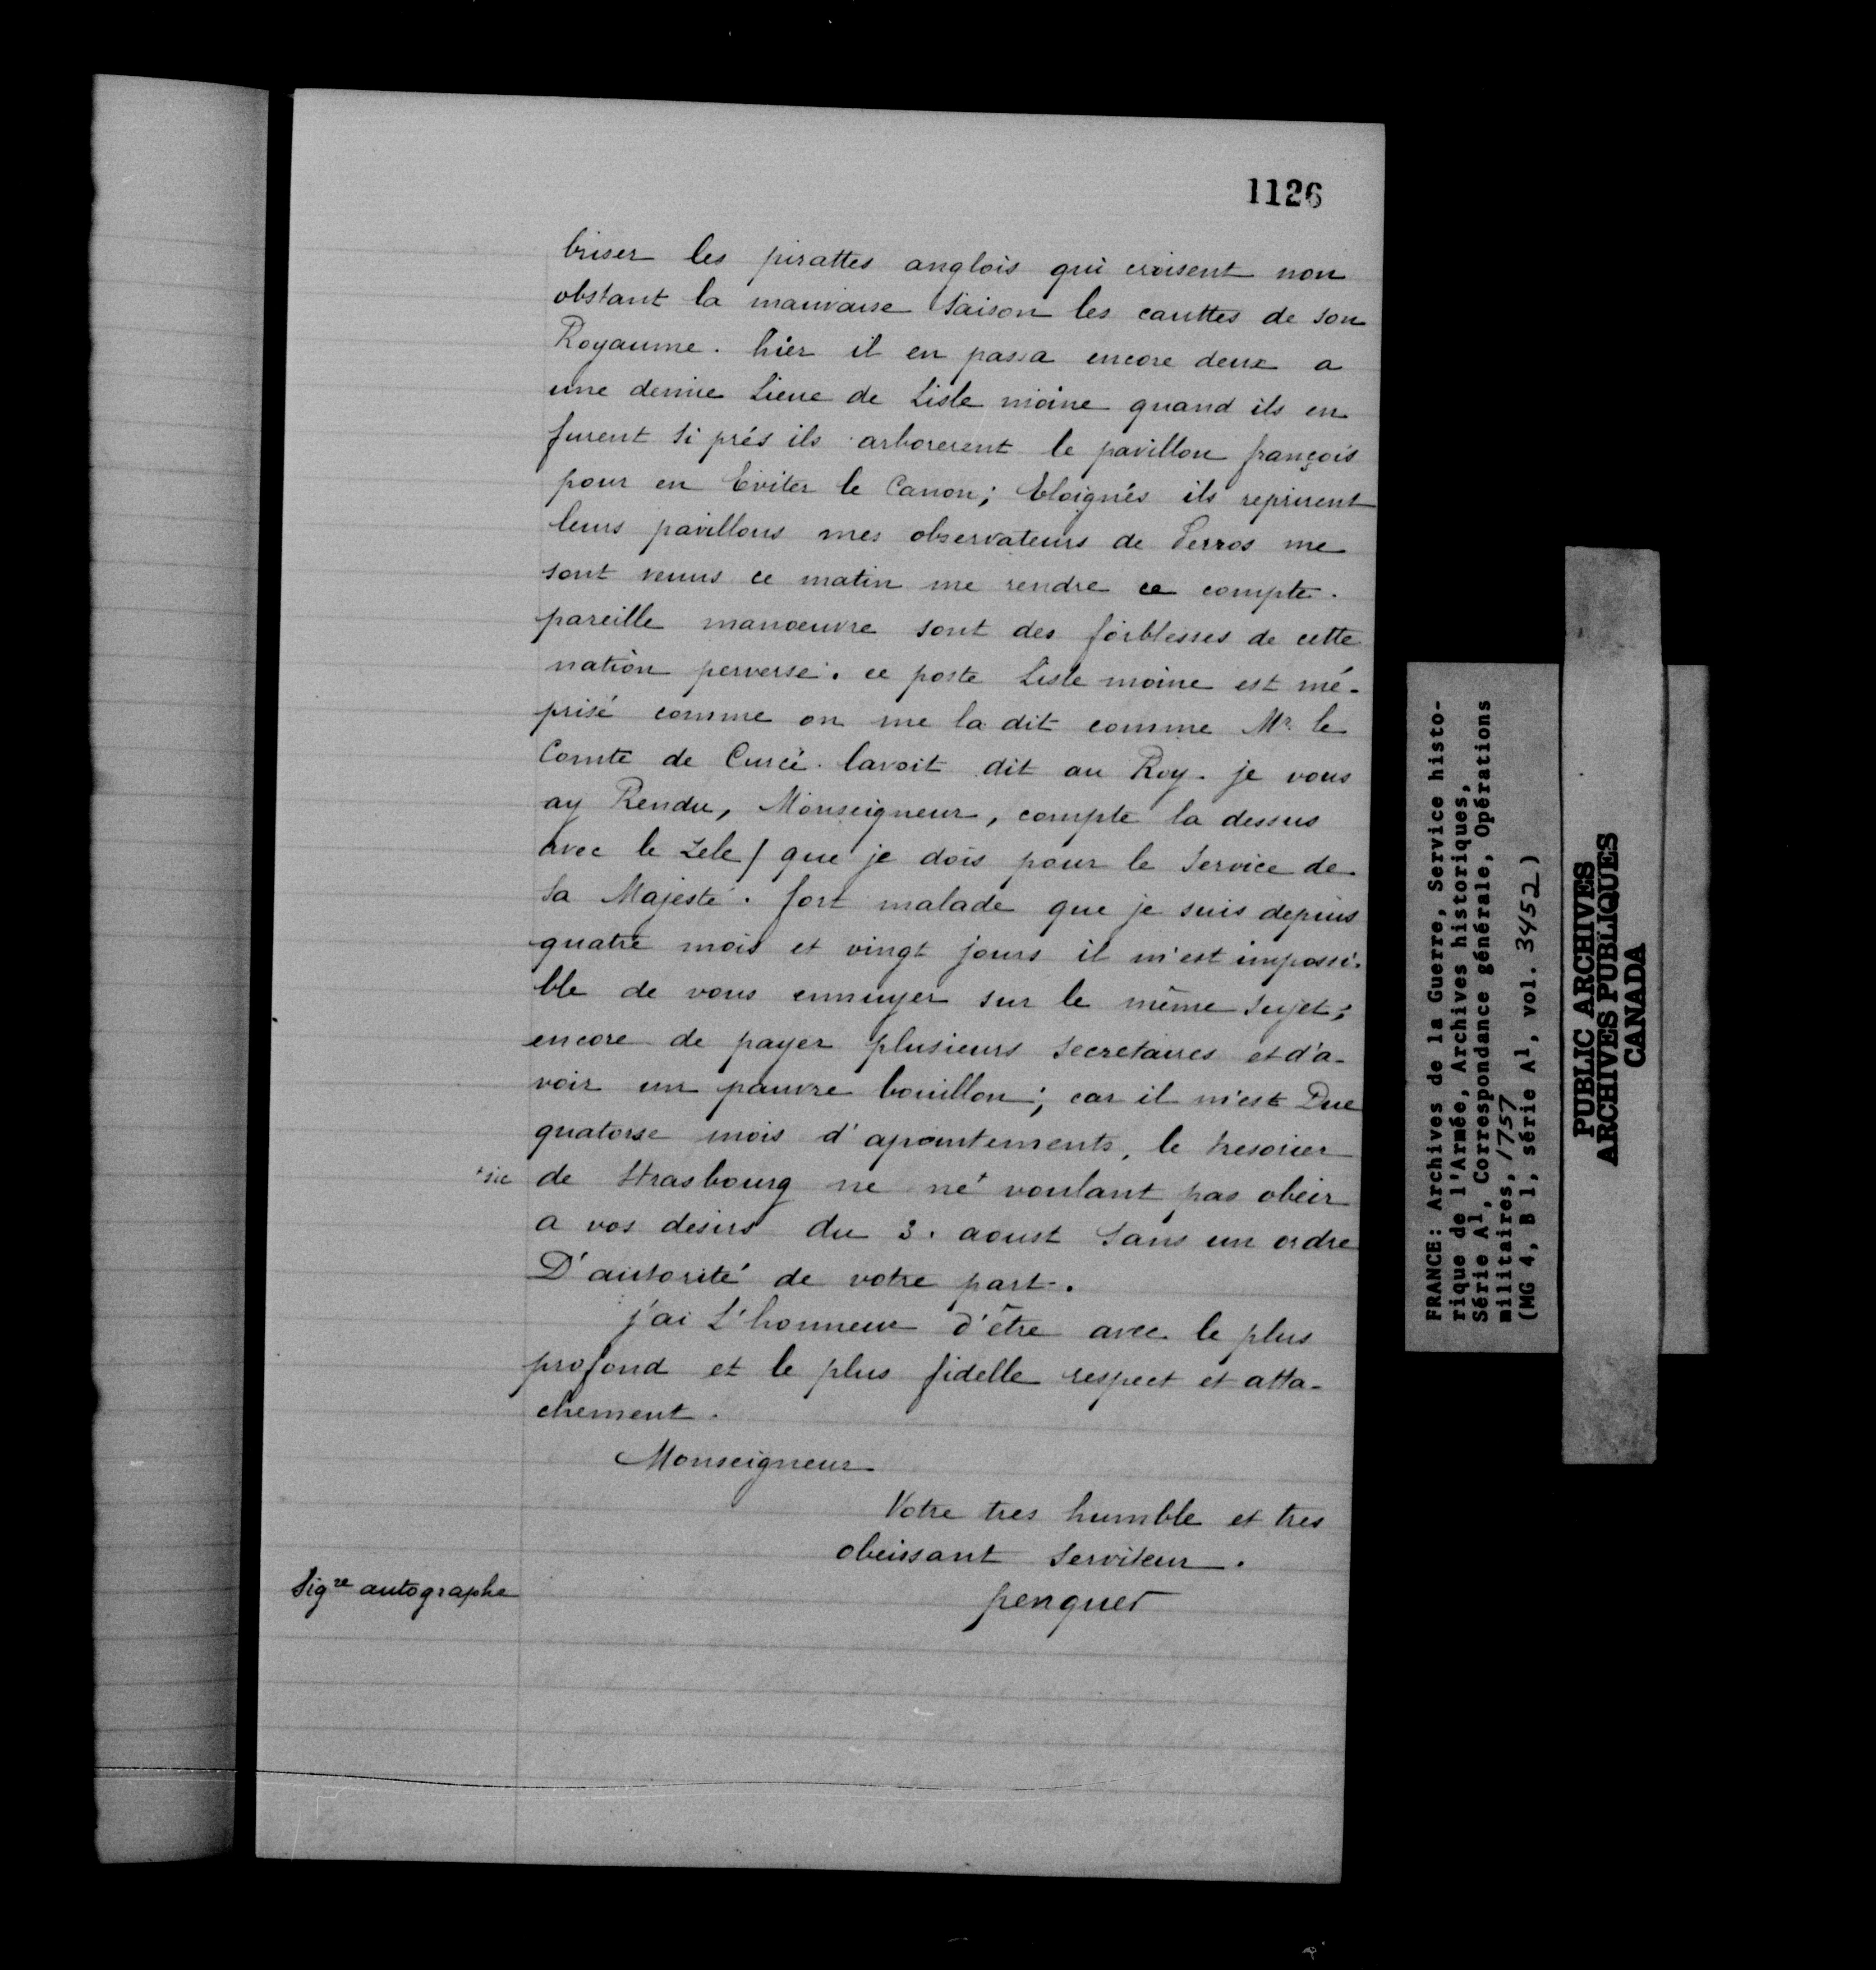 1126
briser les pirattes anglois qui croisent non
obstant la mauvaise Saison les cauttes de son
Royaume. hier il en passa encore deux a
une demie Lieue de Lisle moine quand ils en
furent Si prés ils arborerent le pavillon françois
pour en Eviter le Canon; Eloignés ils reprirent
leurs pavillons mes observateurs de Perros me
sont venus ce matin me rendre ce compte.
pareille manœuvre sont des foiblesses de cette
nation perverse. ce poste Lisle moine est mé-
prisé comme on me la dit comme Mr le
Comte de Curcé lavoit dit au Roy. je vous
ay Rendu, Monseigneur, compte la dessus
avec le Zele / que je dois pour le Service de
Sa Majesté. fort malade que je suis depuis
quatre mois et vingt jours il m'est impossi-
ble de vous ennuyer sur le même Sujet;
encore de payer plusieurs Secretaires et d'a-
voir un pauvre bouillon; car il m'est Due
quatorse mois d'apointements, le tresorier
+sic de Strasbourg ne ne+ voulant pas obeir
a vos desirs du 3. aoust Sans un ordre
D'autorité de votre part.
j'ai L'honneur d'être avec le plus
profond et le plus fidelle respect et atta-
chement.
Monseigneur
Votre tres humble et tres
obeissant Serviteur.
Sigre autographe penguer
FRANCE: Archives de la Guerre, Service histo-
rique de l'Armée, Archives historiques,
Série A1, Correspondance générale, Opérations
militaires, 1757
(MG 4, B 1, série A1, vol. 3452)
PUBLIC ARCHIVES
ARCHIVES PUBLIQUES
CANADA